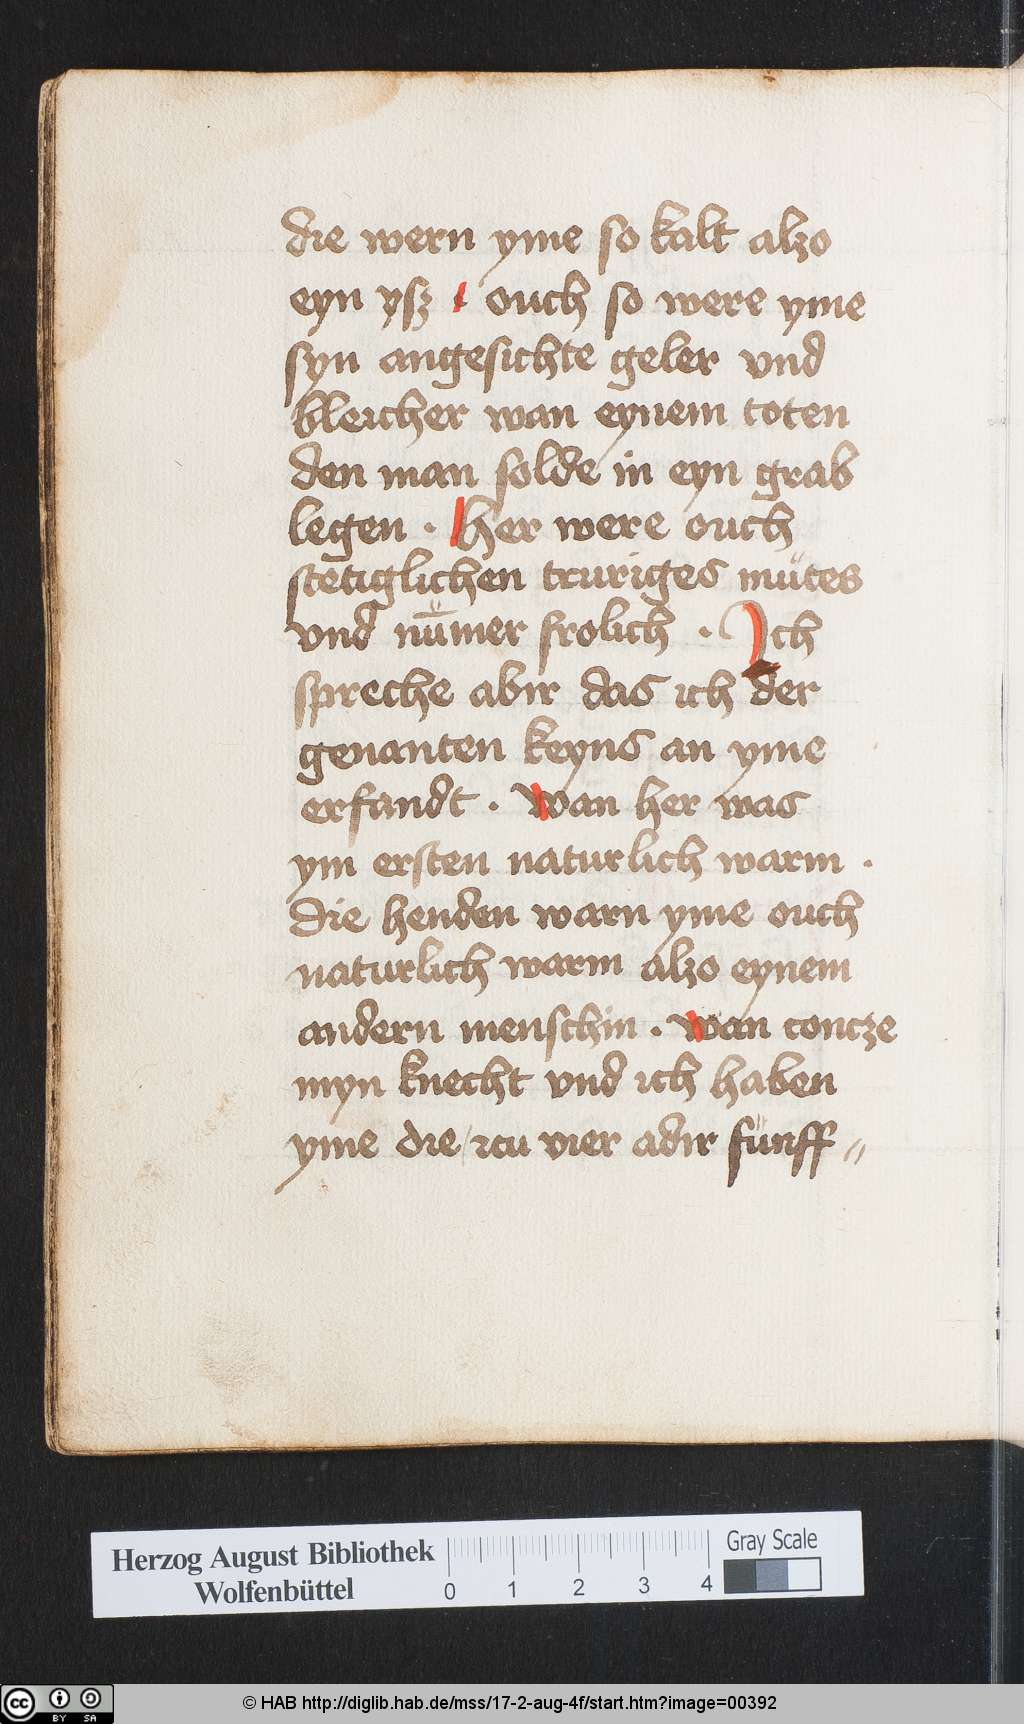 die wern yme so kalt alzo
eyn ysz · ouch so were yme
syn angesichte geler vnd
bleicher wan eynem toten
den man solde in eyn grab
legen · her were ouch
stetiglichen truriges mütes
vnd nūmer frolich · Ich
spreche abir das ich der
genanten keyns an yme
erfandt · Wan her was
ym ersten naturlich warm ·
die henden warn yme ouch
naturlich warm alzo eynem
andern menschin · Wan contze
myn knecht vnd ich haben
yme die icu vier adir fünff〃
Herzog August Bibliothek
Wolfenbüttel
0 1 2 3 4
Gray Scale
cc BY SA
© HAB http://diglib.hab.de/mss/17-2-aug-4f/start.htm?image=00392